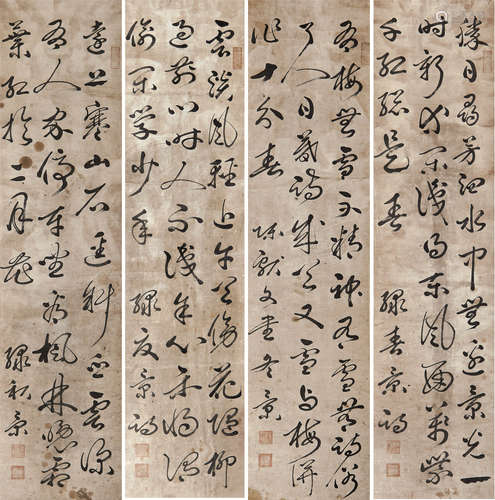 勝日尋芳泗水中無邊景光一
時新等閒識得東風面萬紫
千紅總是春 錄春景詩
有梅無雪不精神有雪無詩俗
了人日暮詩成天又雪與梅併
作十分春 陳獻文書冬景
雲淡風輕近午天傍花隨柳
過前川時人不識余心樂將謂
偷閒學少年 錄夏景詩
遠上寒山石逕斜白雲深
有人家停車坐愛楓林晚霜
葉紅於二月花 錄秋景